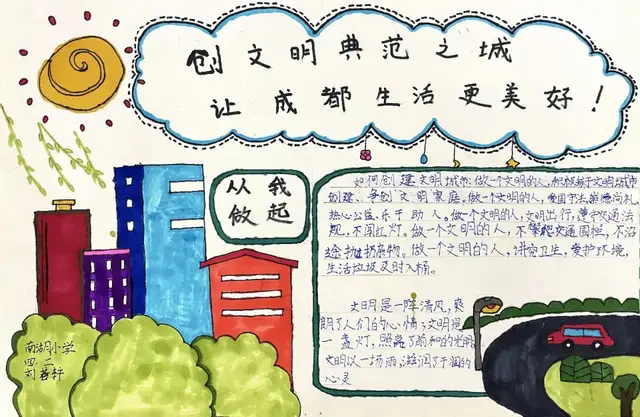 创文明典范之城
让成都生活更美好！
从我
做起
如何创建文明城市：做一个文明的人，积极参于文明城市
创建、争创文明家庭。做一个文明的人，爱国守法，
热心公益，乐于助人。做一个文明的人，文明出行，遵守交通法
规，不闯红灯。做一个文明的人，不攀爬交通围栏，不沿
途抛扔废物。做一个文明的人，讲究卫生，爱护环境，
生活垃圾及时入桶。
文明是一阵清风，爽
朗了人们的心情；文明是
一盏灯，照亮了前和的光明
文明以一场雨，滋润了干涸的
心灵
南湖小学
四.二